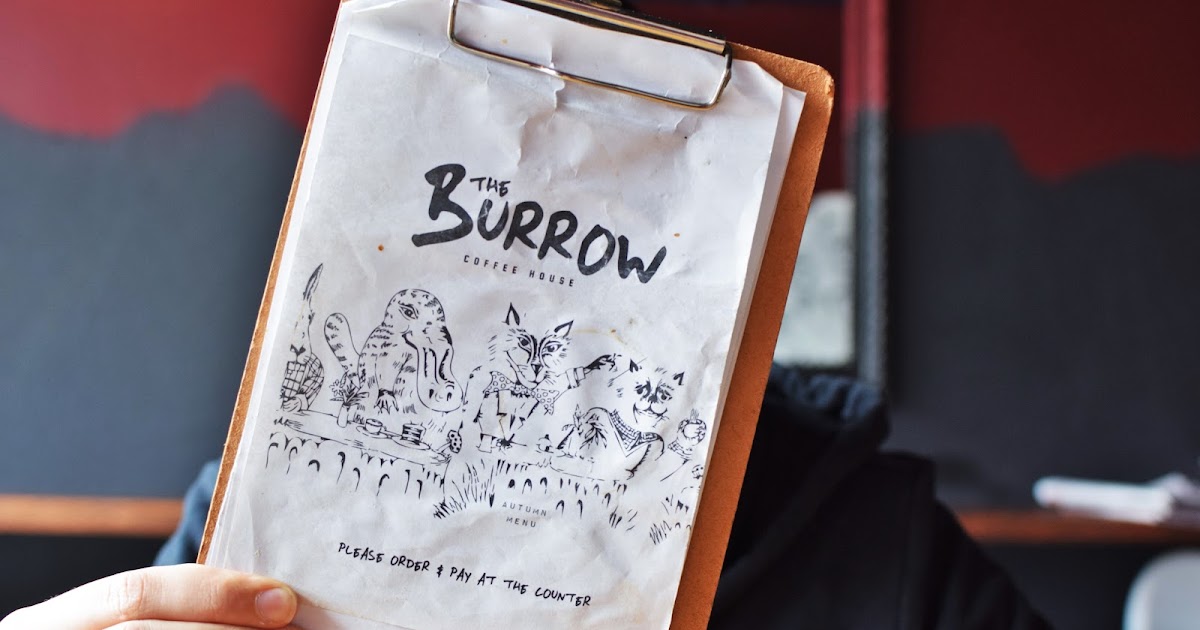 THE
BURROW
COFFEE HOUSE
AUTUMN
MENU
PLEASE ORDER & PAY AT THE COUNTER